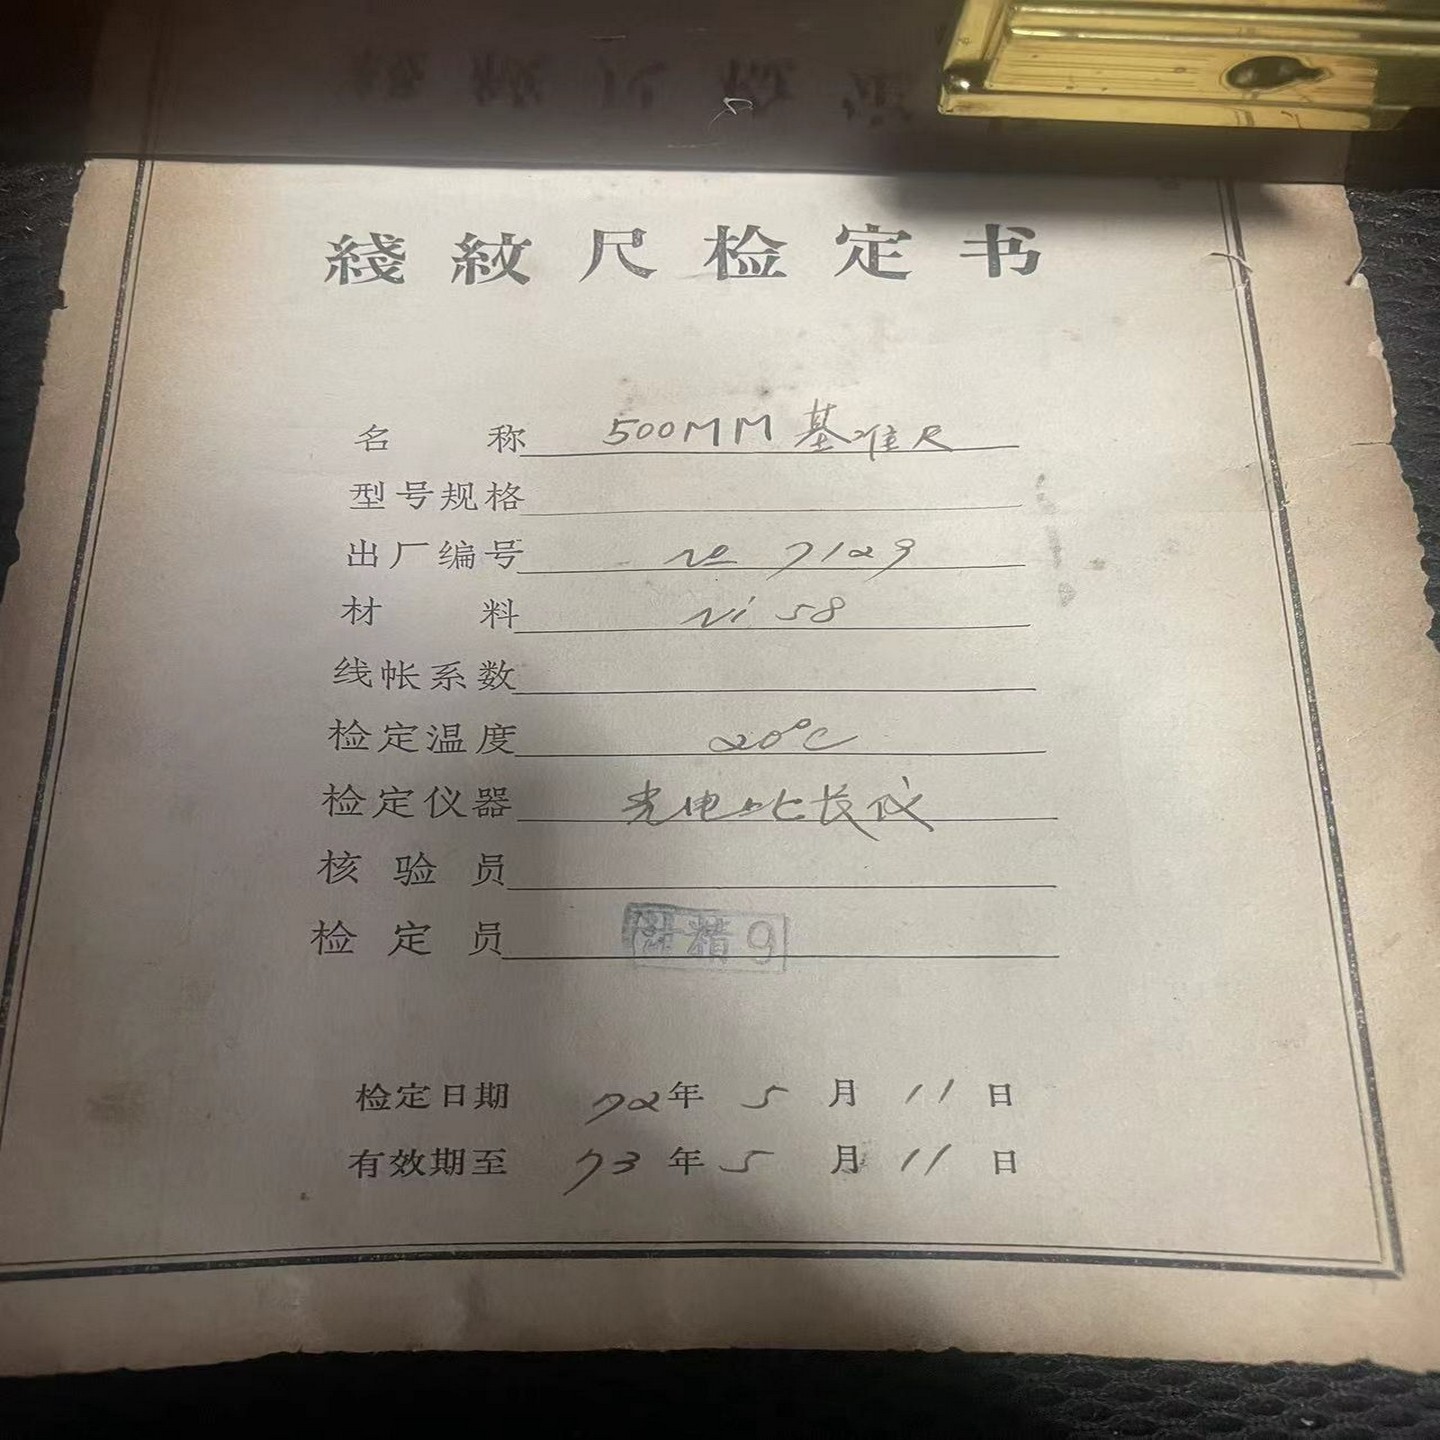 綫紋尺检定书
名称 500MM基准尺
型号规格
出厂编号 № 7129
材料 Ni 58
线帐系数
检定温度 20°C
检定仪器 光电比长仪
核验员
检定员 精9
检定日期 72年5月11日
有效期至 73年5月11日